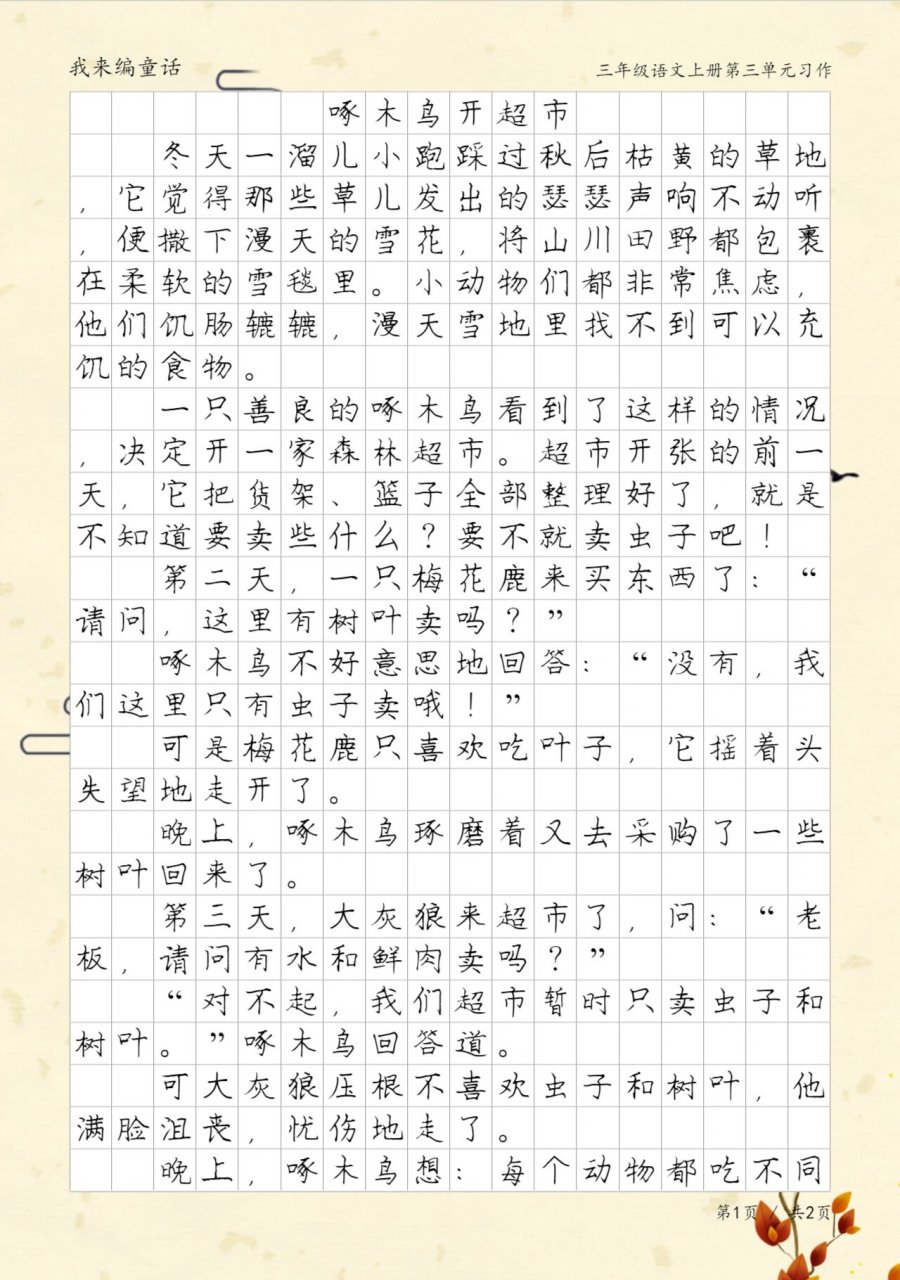 我来编童话
三年级语文上册第三单元习作
啄木鸟开超市
冬天一溜儿小跑踩过秋后枯黄的草地
，它觉得那些草儿发出的瑟瑟声响不动听
，便撒下漫天的雪花，将山川田野都包裹
在柔软的雪毯里。小动物们都非常焦虑，
他们饥肠辘辘，漫天雪地里找不到可以充
饥的食物。
一只善良的啄木鸟看到了这样的情况
，决定开一家森林超市。超市开张的前一
天，它把货架、篮子全部整理好了，就是
不知道要卖些什么？要不就卖虫子吧！
第二天，一只梅花鹿来买东西了：“
请问，这里有树叶卖吗？”
啄木鸟不好意思地回答：“没有，我
们这里只有虫子卖哦！”
可是梅花鹿只喜欢吃叶子，它摇着头
失望地走开了。
晚上，啄木鸟琢磨着又去采购了一些
树叶回来了。
第三天，大灰狼来超市了，问：“老
板，请问有水和鲜肉卖吗？”
“对不起，我们超市暂时只卖虫子和
树叶。”啄木鸟回答道。
可大灰狼压根不喜欢虫子和树叶，他
满脸沮丧，忧伤地走了。
晚上，啄木鸟想：每个动物都吃不同
第1页 / 共2页